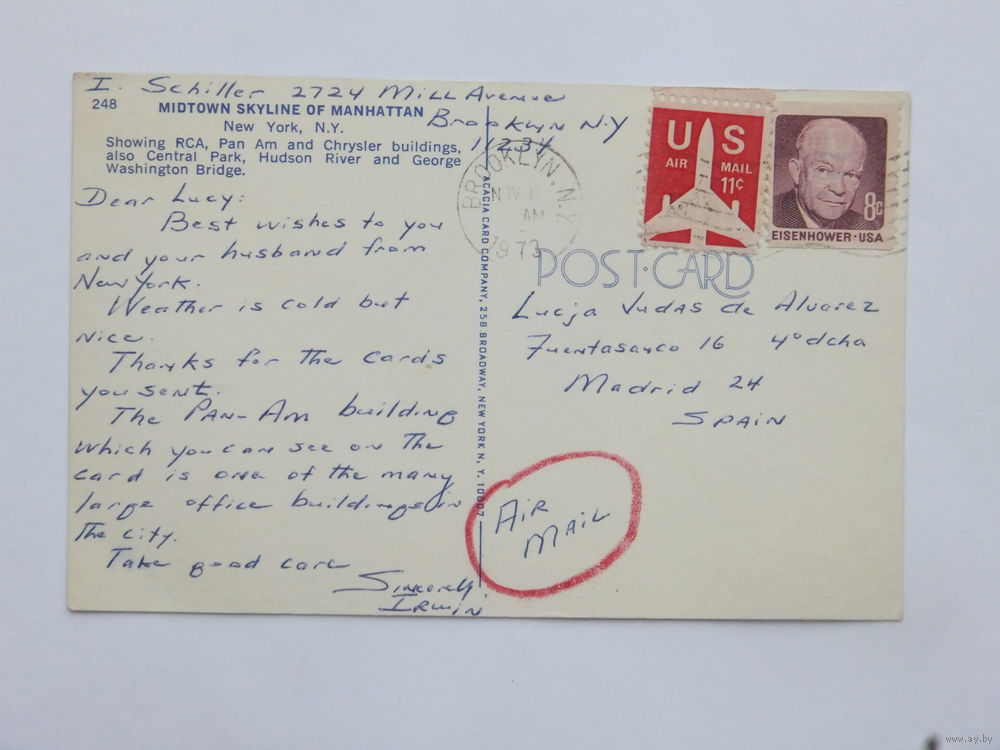 I. Schiller 2724 Mill Avenue
Brooklyn N.Y
11234
248 MIDTOWN SKYLINE OF MANHATTAN
New York, N.Y.
Showing RCA, Pan Am and Chrysler buildings,
also Central Park, Hudson River and George
Washington Bridge.
Dear Lucy:
Best wishes to you
and your husband from
New York.
Weather is cold but
nice.
Thanks for the cards
you sent.
The PAN-AM building
which you can see on the
card is one of the many
large office buildings in
the city.
Take good care
Sincerely
Irwin
ACACIA CARD COMPANY, 258 BROADWAY, NEW YORK N. Y. 10007
BROOKLYN, N.Y
NOV
AM
1973
US
AIR MAIL
11¢
8c
EISENHOWER·USA
POST CARD
Lucja Judas de Alvarez
Fuentasauco 16 4º dcha
Madrid 24
SPAIN
AIR
MAIL
www.ay.by